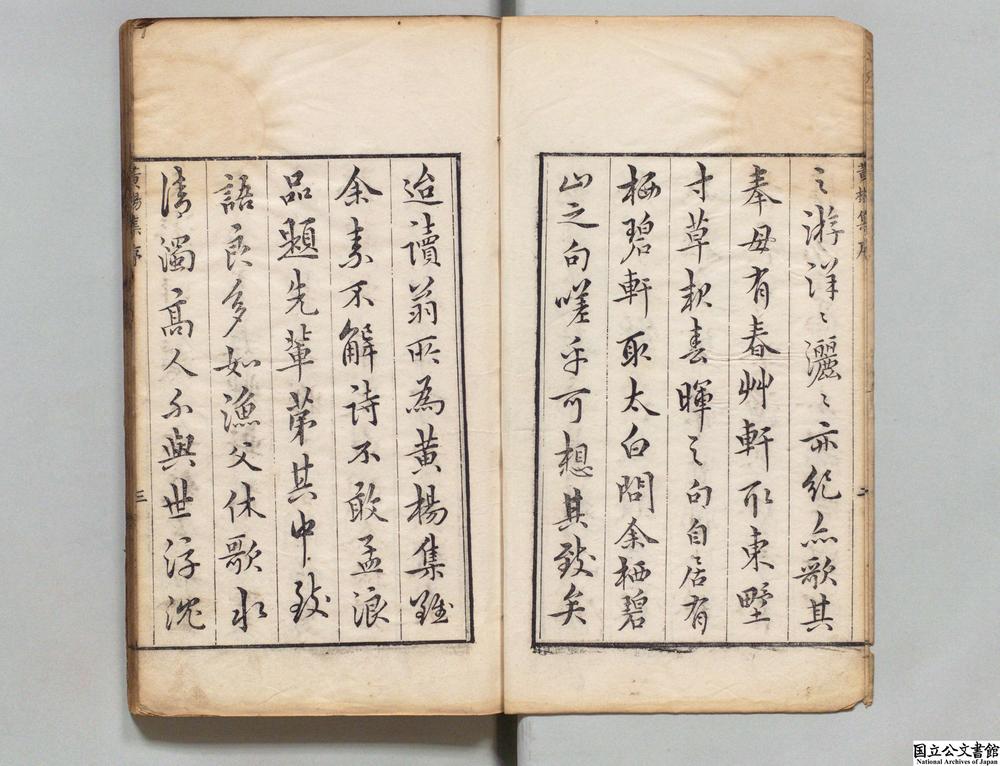 之游洋〻灑〻亦絕無歌其
奉母有春艸軒取東野
寸草報春暉之句自居有
栖碧軒取太白問余栖碧
山之句嗟乎可想其致矣
迨讀翁所為黃楊集雖
余素不解詩不敢孟浪
品題先輩第其中致
語良多如漁父休歌水
清濁高人不與世浮沈
黃楊集序
二
黃楊集序
三
国立公文書館
National Archives of Japan